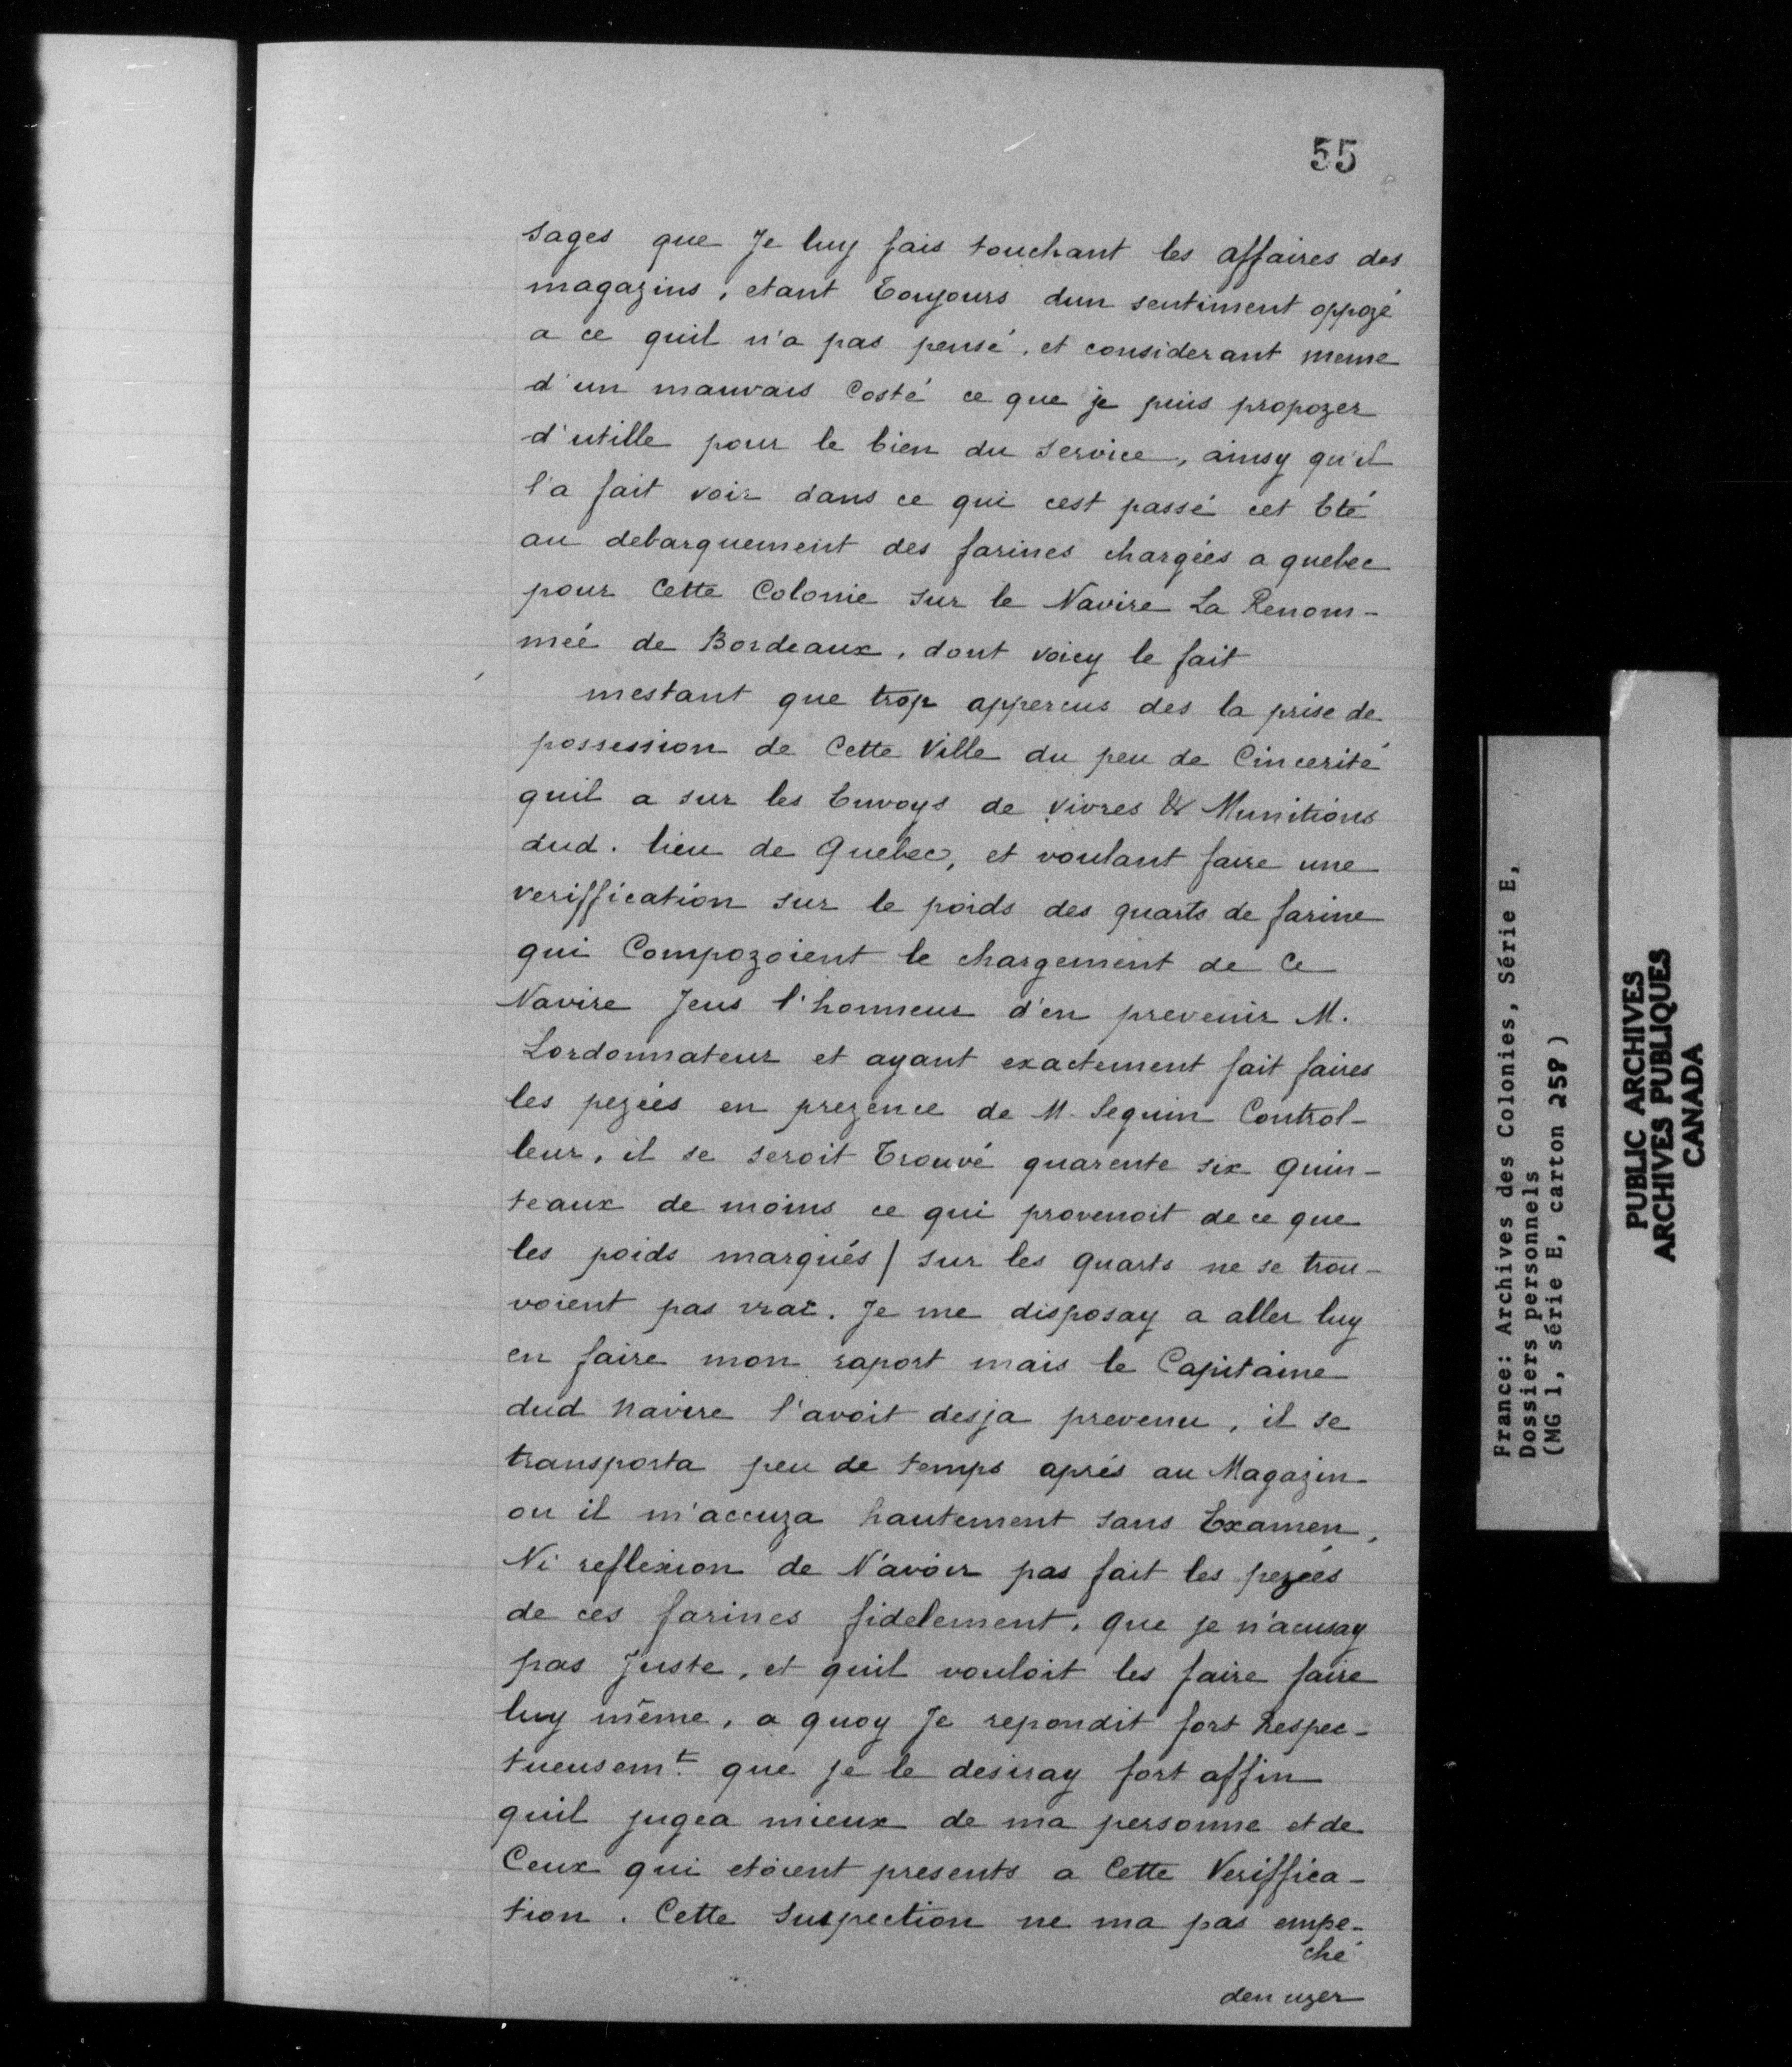 55
sages que Je luy fais touchant les affaires des
magazins, etant Toujours dun sentiment oppozé
a ce quil n'a pas pensé, et considerant meme
d'un mauvais Costé ce que je puis propozer
d'utille pour le bien du service, ainsy qu'il
l'a fait voir dans ce qui cest passé cet Eté
au debarquement des farines chargées a quebec
pour Cette Colonie sur le Navire La Renom-
meé de Bordeaux, dont voicy le fait
mestant que trop appercus des la prise de
possession de Cette Ville du peu de Cincerité
quil a sur les Envoys de vivres & Munitions
dud. lieu de Quebec, et voulant faire une
veriffication sur le poids des quarts de farine
qui Compozoient le chargement de Ce
Navire Jeus l'honneur d'en prevenir M.
Lordonnateur et ayant exactement fait faires
les pezeés en prezence de M. Seguin Control-
leur, il se seroit Trouvé quarente six Quin-
teaux de moins ce qui provenoit de ce que
les poids marqués / sur les quarts ne se trou-
voient pas vrai. Je me disposay a aller luy
en faire mon raport mais le Capitaine
dud navire l'avoit desja prevenu, il se
transporta peu de temps aprés au Magazin
ou il m'accuza hautement sans Examen,
Ni reflexion de N'avoir pas fait les pezeés
de ces farines fidelement, que je n'acusay
pas Juste, et quil vouloit les faire faire
luy même, a quoy Je repondit fort Respec-
tueusemt. que je le desiray fort affin
quil jugea mieux de ma personne et de
Ceux qui etoient presents a Cette Veriffica-
tion. Cette Suspection ne ma pas empe-
ché
den uzer
France: Archives des Colonies, Série E,
Dossiers personnels
(MG 1, série E, carton 258)
PUBLIC ARCHIVES
ARCHIVES PUBLIQUES
CANADA